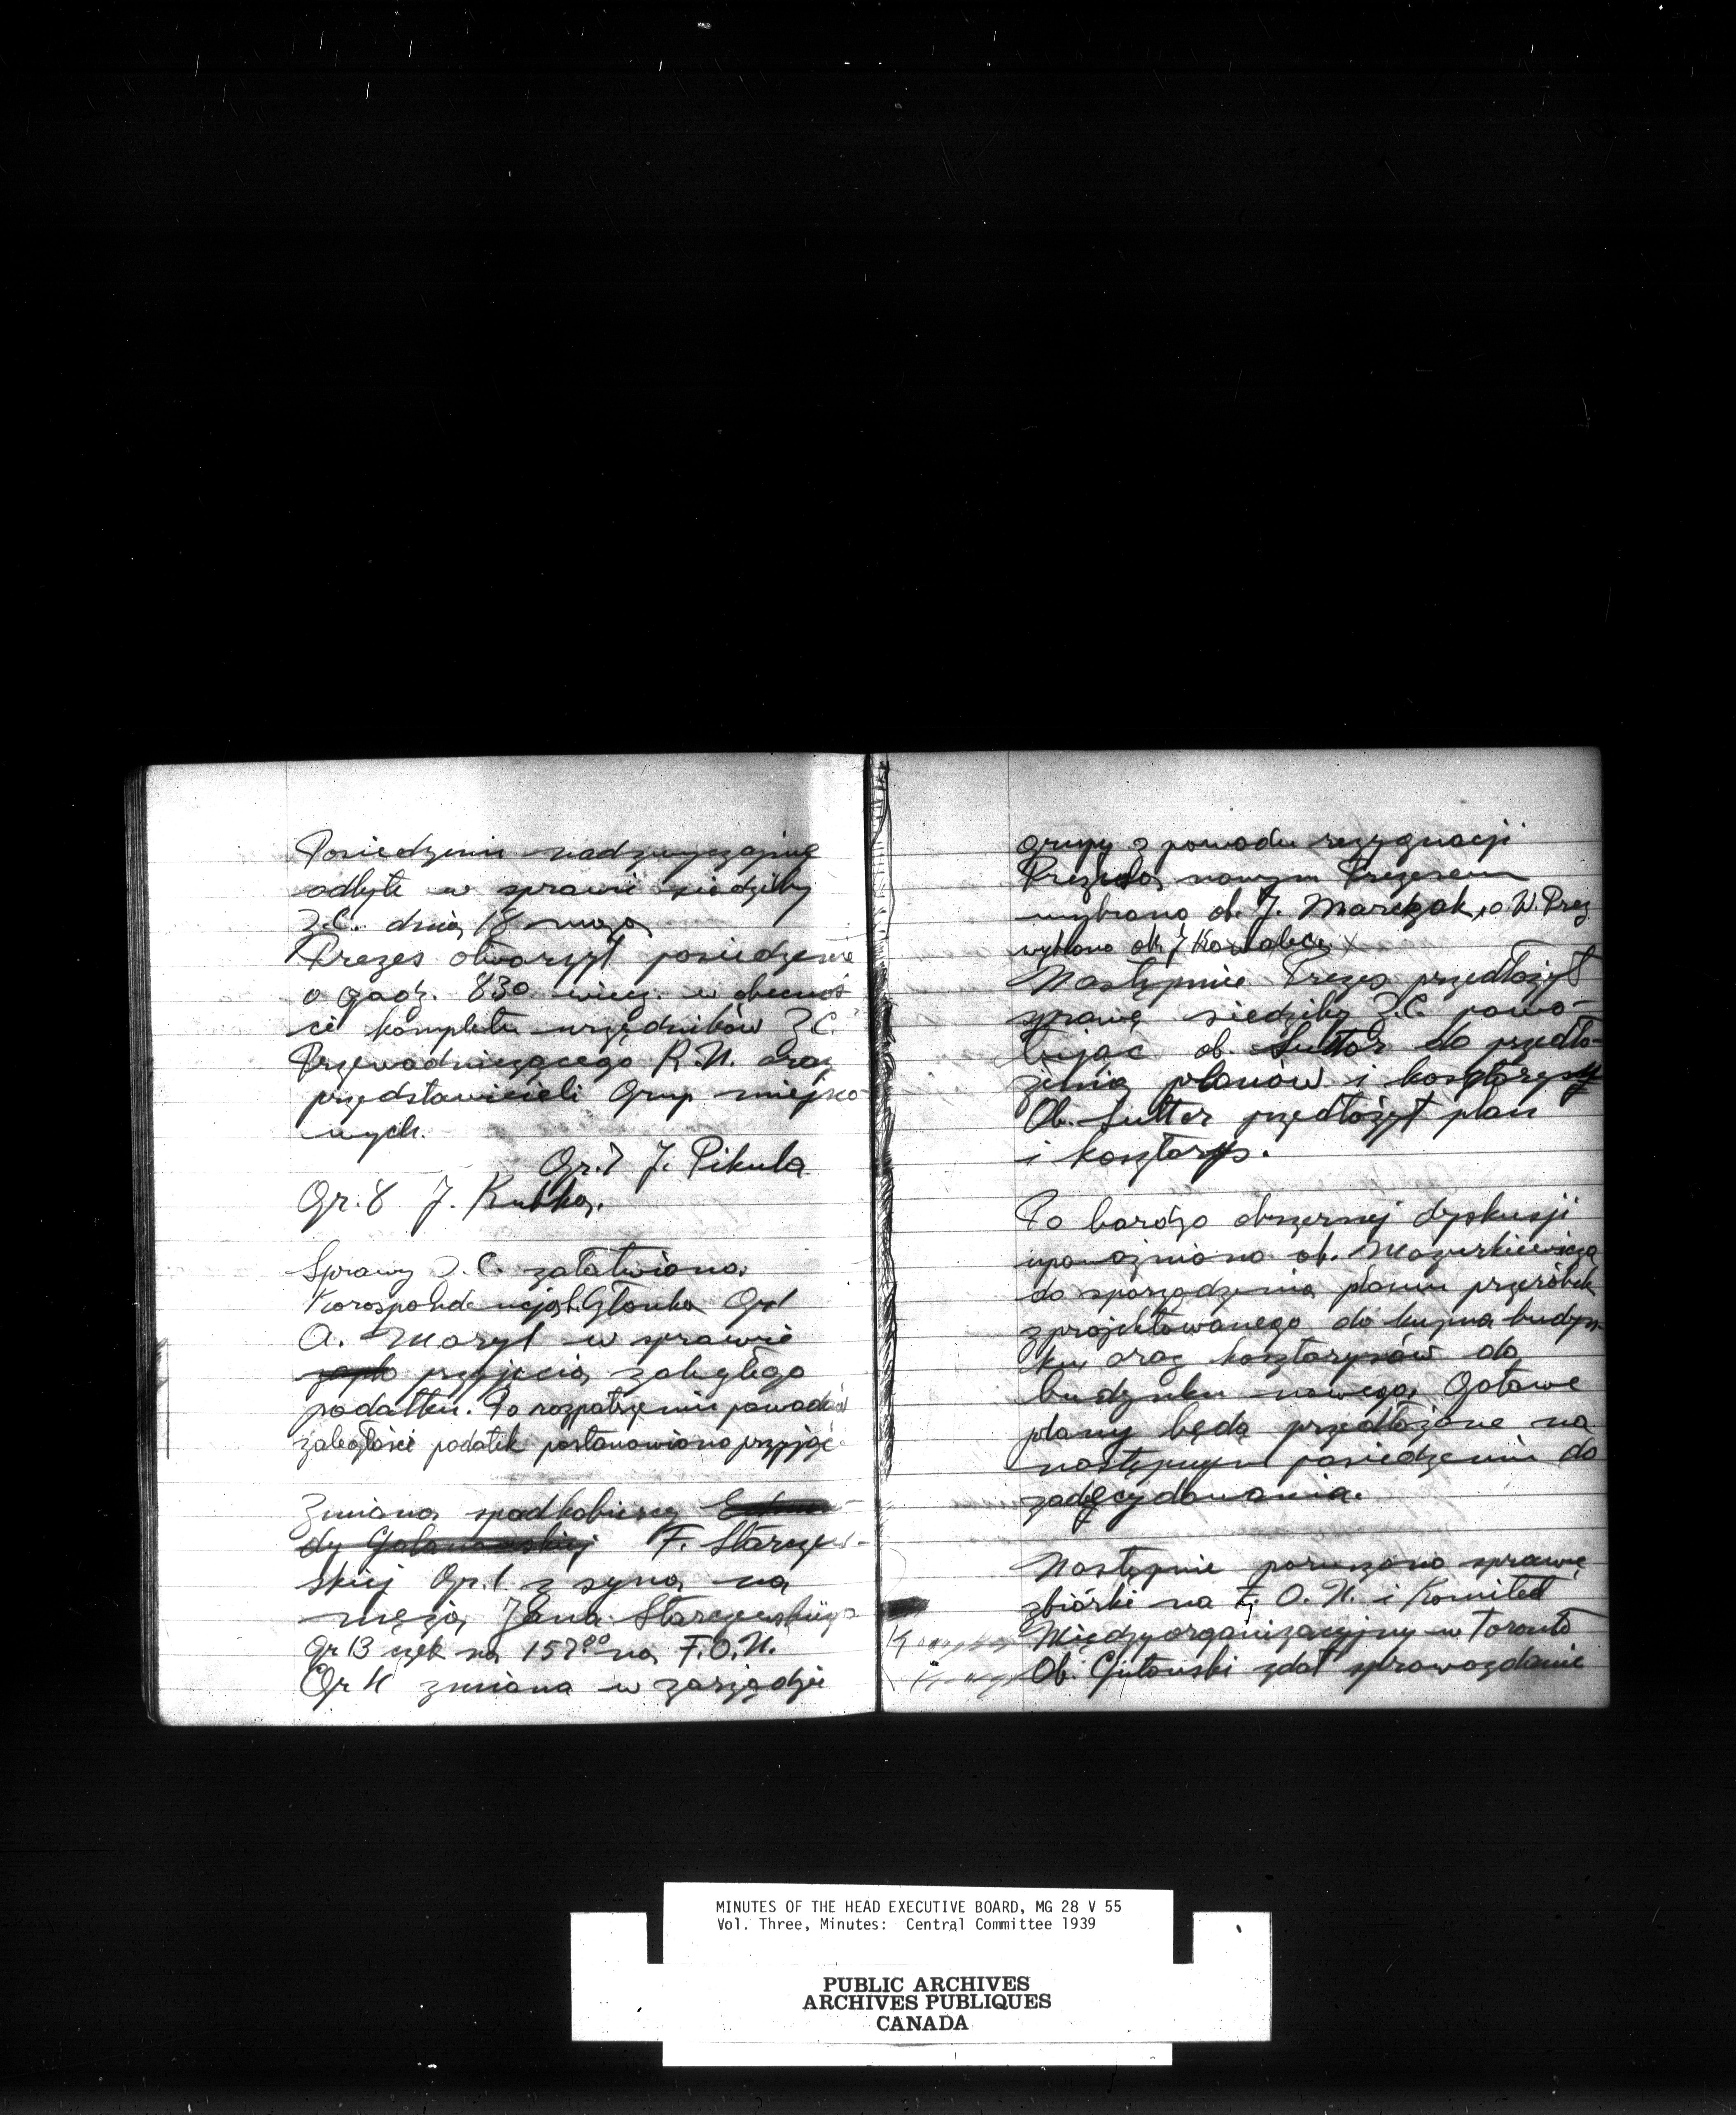 Posiedzenie nadzwyczajne
odbyte w sprawie siedziby
Z.C. dnia 18 maja
Prezes otworzył posiedzenie
o godz. 830 wiecz. w obecnoś
ci kompletu urzędników Z.C.
Przewodniczącego R.N. oraz
przedstawicieli Grup miejsco-
wych.
Gr. 7 J. Pikula
Gr. 8 J. Kubka.
Sprawy Z.C. załatwiono.
Korespondencja Gr 1
A. Maryl w sprawie
przyjęcia zaległego
podatku. Po rozpatrzeniu powodów
zaległości podatek postanowiono przyjąć.
Zmiana spadkobiercy
F. Starzew-
skiej Gr. 1 z syna na
męża, Jana Starzewskiego
Gr 13 czek na 157 na F.O.N.
Gr 4 zmiana w zarządzie
grupy z powodu rezygnacji
Prezesa, nowym Prezesem
wybrano ob. J. Marczak, a W. Prez
wybrano ob. J Kowalec
Następnie Prezes przedłożył
sprawę siedziby Z.C. powo-
łując ob. Sutter do przedło-
żenia planów i kosztorysy
Ob. Sutter przedłożył plan
i kosztorys.
Po bardzo obszernej dyskusji
upoważniono ob. Mazurkiewicza
do sporządzenia planu przeróbek
zprojektowanego do kupna budyn-
ku oraz kosztorysów do
budynku nowego. Gotowe
plany będą przedłożone na
następnym posiedzeniu do
zadecydowania.
Następnie poruszono sprawę
zbiórki na F.O.N. i Komitet
Międzyorganizacyjny w Toronto
Ob. zdał sprawozdanie
MINUTES OF THE HEAD EXECUTIVE BOARD, MG 28 V 55
Vol. Three, Minutes: Central Committee 1939
PUBLIC ARCHIVES
ARCHIVES PUBLIQUES
CANADA